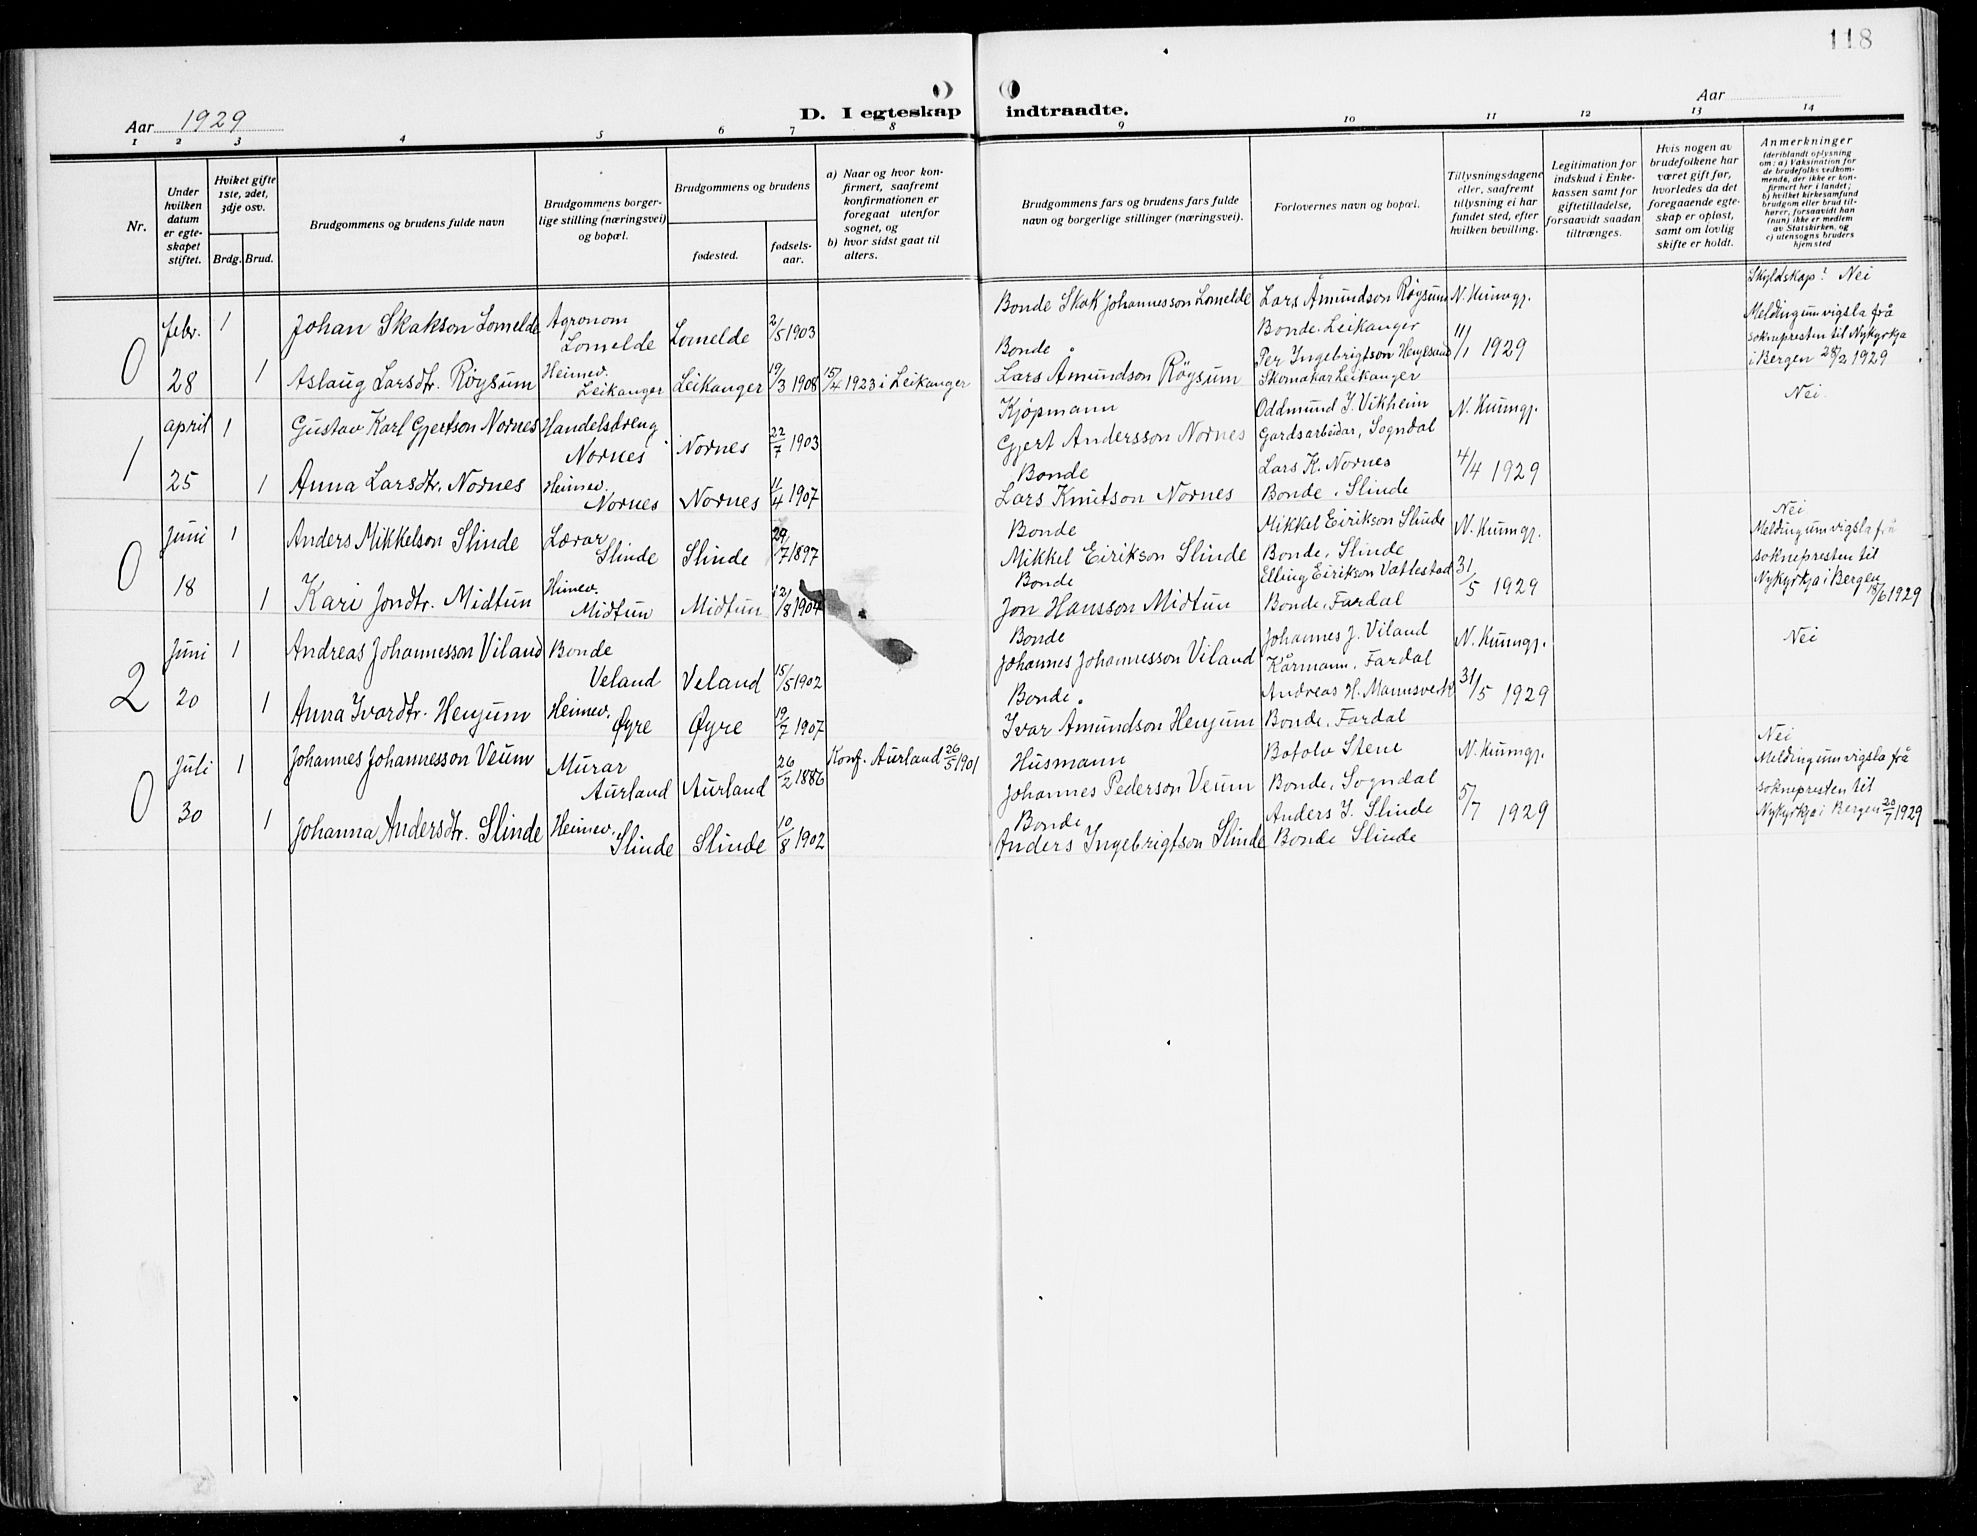 118
Aar 1929
D. I egteskap indtraadte.
Aar
1 2 3 4 5 6 7 8 9 10 11 12 13 14
Nr.
Under hvilken datum er egte-skapet stiftet.
Hviket gifte 1ste, 2det, 3dje osv.
Brdg. Brud.
Brudgommens og brudens fulde navn
Brudgommens borger-lige stilling (næringsvei) og bopæl.
Brudgommens og brudens
fødested.
fødsels-aar.
a) Naar og hvor kon-firmert, saafremt konfirmationen er foregaat utenfor sognet, og
b) hvor sidst gaat til alters.
Brudgommens fars og brudens fars fulde navn og borgerlige stillinger (næringsvei).
Forlovernes navn og bopæl.
Tillysningsdagene eller, saafremt tillysning ei har fundet sted, efter hvilken bevilling.
Legitimation for indskud i Enke-kassen samt for giftetilladelse, forsaavidt saadan tiltrænges.
Hvis nogen av brudefolkene har været gift før, hvorledes da det foregaaende egte-skap er opløst, samt om lovlig skifte er holdt.
Anmerkninger
(deriblandt oplysning om: a) Vaksination for de brudefolks vedkom-mende, der ikke er kon-firmert her i landet; b) hvilket kirkesamfund brudgom eller brud til-hører, forsaavidt han (hun) ikke er medlem av Statskirken, og c) utensogns bruders hjemsted
0
febr. 28
1
Johan Skakson Lomelde
Agronom
Lomelde
Lomelde
2/5 1903
Bonde Skak Johannesson Lomelde
Lars Åmundson Røysum
Bonde. Leikanger
N. Kunngj.
11/1 1929
Skyldskap? Nei
Melding um vigsla frå
soknepresten til Nykyrkja
i Bergen 28/2 1929
1
Aslaug Larsdtr. Røysum
Heimev.
Leikanger
Leikanger
19/3 1908
15/4 1923 i Leikanger
Bonde
Lars Åmundson Røysum
Per Ingebrigtson Henjesand
Skomakar Leikanger
1
april 25
1
Gustav Karl Gjertson Nornes
Handelsdreng
Nornes
Nornes
22/7 1903
Kjøpmann
Gjert Andersson Nornes
Oddmund J. Vikheim
Gardsarbeidar, Sogndal
N. Kunngj.
4/4 1929
Nei.
1
Anna Larsdtr. Nornes
Heimev.
Nornes
Nornes
11/4 1907
Bonde
Lars Knutson Nornes
Lars K. Nornes
Bonde. Slinde
0
Juni 18
1
Anders Mikkelson Slinde
Lærar
Slinde
Slinde
29/7 1897
Bonde
Mikkel Eirikson Slinde
Mikkel Eirikson Slinde
Bonde, Slinde
N. Kunngj.
31/5 1929
Nei
Melding um vigsla frå
soknepresten til
Nykyrkja i Bergen
18/6 1929
1
Kari Jondtr. Midtun
Heimev.
Midtun
Midtun
12/8 1904
Bonde
Jon Hansson Midtun
Elling Eirikson Vatlestad
Bonde, Fardal
2
Juni 20
1
Andreas Johannesson Viland
Bonde
Veland
Veland
15/5 1902
Bonde
Johannes Johannesson Viland
Johannes J. Viland
Kårmann, Fardal
N. Kunngj.
31/5 1929
Nei
1
Anna Ivardtr. Henjum
Heimev.
Øyre
Øyre
19/7 1907
Bonde.
Ivar Amundson Henjum
Andreas H. Mannsverk
Bonde. Fardal
0
Juli 30
1
Johannes Johannesson Veum
Murar
Aurland
Aurland
26/2 1886
Konf. Aurland 26/5 1901
Husmann
Johannes Pederson Veum
Botolv Stene
Bonde, Sogndal
N. Kunngj.
5/7 1929
Nei
Melding um vigsla frå
soknepresten til
Nykyrkja i Bergen 20/7 1929
1
Johanna Andersdtr. Slinde
Heimev.
Slinde
Slinde
10/8 1902
Bonde
Anders Ingebrigtson Slinde
Anders I. Slinde
Bonde Slinde